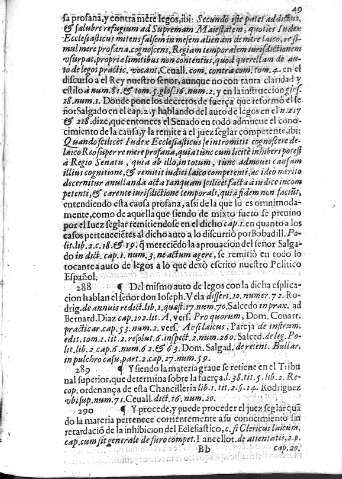 49
sa profana, y contra mere legos, ibi: Secundo iste patet additus,
& salubre refugium ad Supremam Maiestatem, quoties Iudex
Ecclesiasticus mitens falsem in mesem alienam dimere laico, re si-
mul mere profana, cognoscens, Regiam temporalem iurisdictionem
vsurpat, proprÿs limitibus non contentus, quod querellam de au-
to de legos practic. vocant, Ceuall. com. contra com. tom. 4. en el
discurso al Rey nuestro señor, aunque no con tanta claridad y
estilo à num. 81. & tom. 3. glos. 16. num. 2. y en la instruccion
28. num. 1. Donde pone los decretos de fuerça que reformò el se
ñor Salgado en el cap. 2. y hablando del auto de legos en el n. 217
& 218. dize, que entonces el Senado en todo admueue el cono-
cimiento de la causa, y la remite a el juez seglar competente, ibi:
Quando scilicet Iudex Ecclesiasticus se intromittit cognoscere de
Laico Reo super re mere profana, quia tunc cum licitè inhiberi possit
à Regio Senatu, quia ab illo, in totum, tunc admouet causam
illius cognitione, & remittit iudici laico competenti, ac ideo meritò
discernitur anullanda acta tanquam scilicet facta à iudice incom
petenti, & carente iurisdictione temporali, quia fidem non facit,
entendiendo esta causa profana, assi de la que lo es omnimoda-
mente, como de aquella que siendo de mixto fuero se preuino
por el Iuez seglar remitiendose en el dicho cap. 1. en quanto a los
casos pertenecientes al dicho auto a lo discurrido por Bobadill. Po-
lit. lib. 2. c. 18. & 19. q̃ merecieudo la aprouacion del señor Salga-
do in dict. cap. 1. num. 3. ne actum agere, se remitiò en todo lo
tocante a auto de legos a lo que dexò escrito nuestro Politico
Español.
288 ¶ Del mismo auto de legos con la dicha esplica-
cion hablan el señor don Ioseph. Vela dissert. 10. numer. 72. Ro-
drig. de annuis redit. lib. 1. quæst. 17. num. 70. Salcedo in prax. ad
Bernard. Diaz cap. 102. lit. A, vers. Pro quorum, Dom. Couarr.
practicar. cap. 53. num. 2. vers. Ac si laicus, Pareja de instrum.
edit. tom. 1. tit. 2. resolut. 6. inspect. 2. num. 260. Salced. de leg. Po-
lit. lib. 2. cap. 6. num. 61. & 63. Dom. Salgad. de retent. Bullar.
in pulchro casu, part. 2. cap. 27. num. 59.
289 ¶ Y siendo la materia graue se retiene en el Tribu
nal superior, que determina sobre la fuerça. l. 38. tit. 5. lib. 2. Re-
cop. ordenança de esta Chancelleria lib. 1. tit. 2. §. 14. Rodriguez
vbi sup. num. 71. Ceuall. dict. 16. num. 20.
290 ¶ Y procede, y puede proceder el juez seglar quã
do la materia pertenece corrientemente a su conocimiento sin
retardació de la inhibicion del Eclesiastico, c. si Clericus Laicum,
cap. cum sit generale de foro compet. Lancellot. de attentatis, 2. p.
Bb cap. 20.